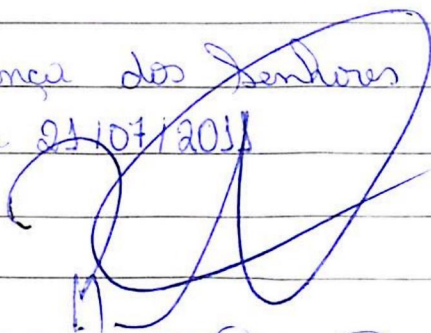 dos Senhores
21/07/2011